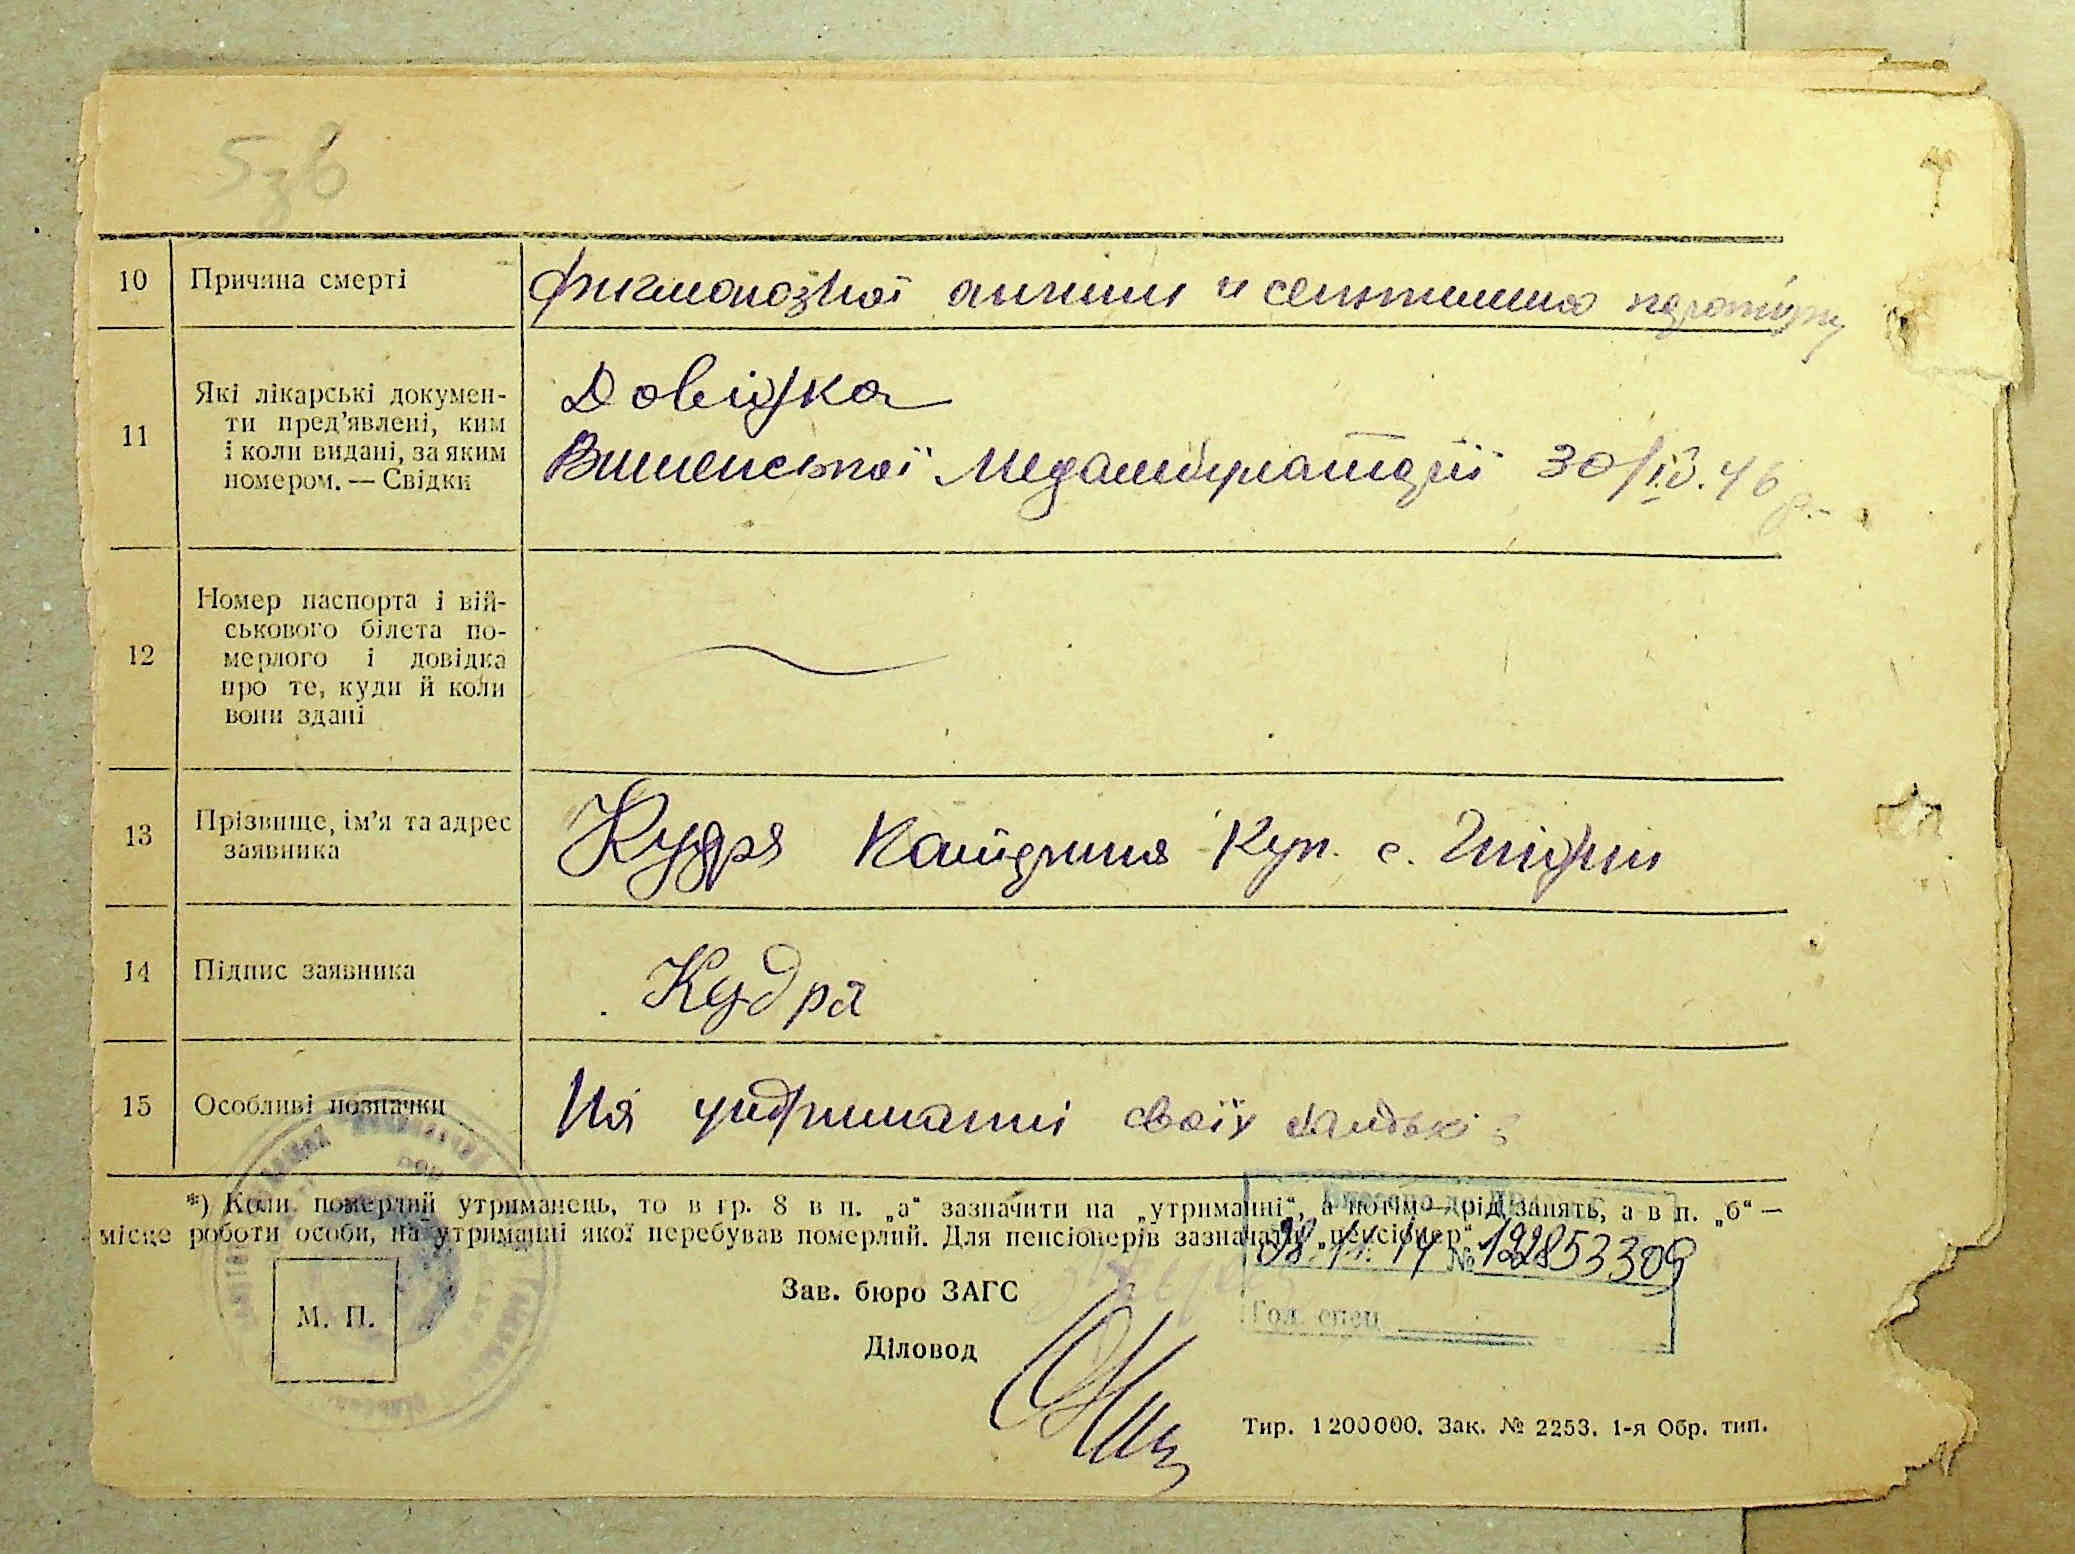 5зв
10 Причина смерті
ангини и
11 Які лікарські докумен-
ти пред'явлені, ким
і коли видані, за яким
номером. — Свідки
Довідка
Вишенської Медамбулаторії 30/IV.46 р.
12 Номер паспорта і вій-
ськового білета по-
мерлого і довідка
про те, куди й коли
вони здані
13 Прізвище, ім'я та адрес
заявника
Кудря с.
14 Підпис заявника
Кудря
15 Особливі позначки
На утриманні своїх батьків
*) Коли померлий утриманець, то в гр. 8 в п. „а“ зазначити на „утриманні“, а потім—рід занять, а в п. „б“ —
місце роботи особи, на утриманні якої перебував померлий. Для пенсіонерів зазначати „пенсіонер“.
№ 122853309
Зав. бюро ЗАГС
Гол. спец
М. П.
Діловод
Тир. 1200000. Зак. № 2253. 1-я Обр. тип.